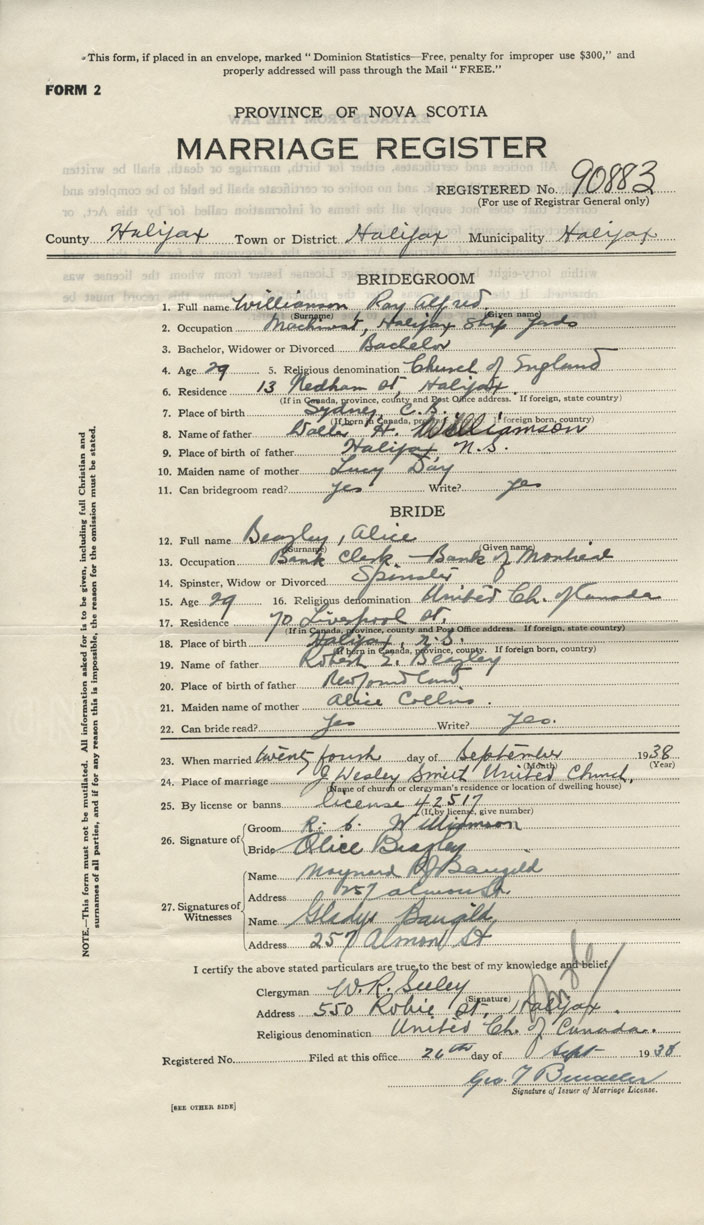 This form, if placed in an envelope, marked "Dominion Statistics—Free, penalty for improper use $300," and
properly addressed will pass through the Mail "FREE."
FORM 2
PROVINCE OF NOVA SCOTIA
MARRIAGE REGISTER
REGISTERED No. 90883
(For use of Registrar General only)
County Halifax Town or District Halifax Municipality Halifax
BRIDEGROOM
1. Full name Williamson Ray Alfred
(Surname) (Given name)
2. Occupation Machinist, Halifax Ship Yards
3. Bachelor, Widower or Divorced Bachelor
4. Age 29 5. Religious denomination Church of England
6. Residence 13 Nedham St, Halifax
(If in Canada, province, county and Post Office address. If foreign, state country)
7. Place of birth Sydney, C.B.
(If born in Canada, foreign born, country)
8. Name of father H. Williamson
9. Place of father Halifax N.S.
10. Maiden name of mother Lucy Day
11. Can bridegroom read? yes Write? yes
BRIDE
12. Full name Beazley, Alice
(Surname) (Given name)
13. Occupation Bank Clerk - Bank of Montreal
14. Spinster, Widow or Divorced Spinster
15. Age 29 16. Religious denomination United Ch. of Canada
17. Residence 70 Liverpool St.
(If in Canada, province, county and Post Office address. If foreign, state country)
18. Place of birth Halifax, N.S.
(If born in Canada, province, county. If foreign born, country)
19. Name of father Robert E. Beazley
20. Place of birth of father Newfoundland
21. Maiden name of mother Alice Collins.
22. Can bride read? Yes Write? Yes.
23. When married twenty fourth day of September 1938
(Month) (Year)
24. Place of marriage J Wesley Smith United Church,
(Name of church or clergyman's residence or location of dwelling house)
25. By license or banns license 42517
(If by license, give number)
26. Signature of Groom Williamson
Bride Alice Beazley
27. Signatures of Witnesses
Name Maynard Baugild
Address 257 Almon St
Name Gladys Baugild
Address 257 Almon St
I certify the above stated particulars are true to the best of my knowledge and belief
Clergyman W. R. Seeley
(Signature)
Address 550 Robie St, Halifax.
Religious denomination United Ch. of Canada.
Registered No. Filed at this office 26th day of Sept 1938
Geo. T
Signature of Issuer of Marriage License.
[SEE OTHER SIDE]
NOTE.—This form must not be mutilated. All information asked for is to be given, including full Christian and
surnames of all parties, and if for any reason this is impossible, the reason for the omission must be stated.